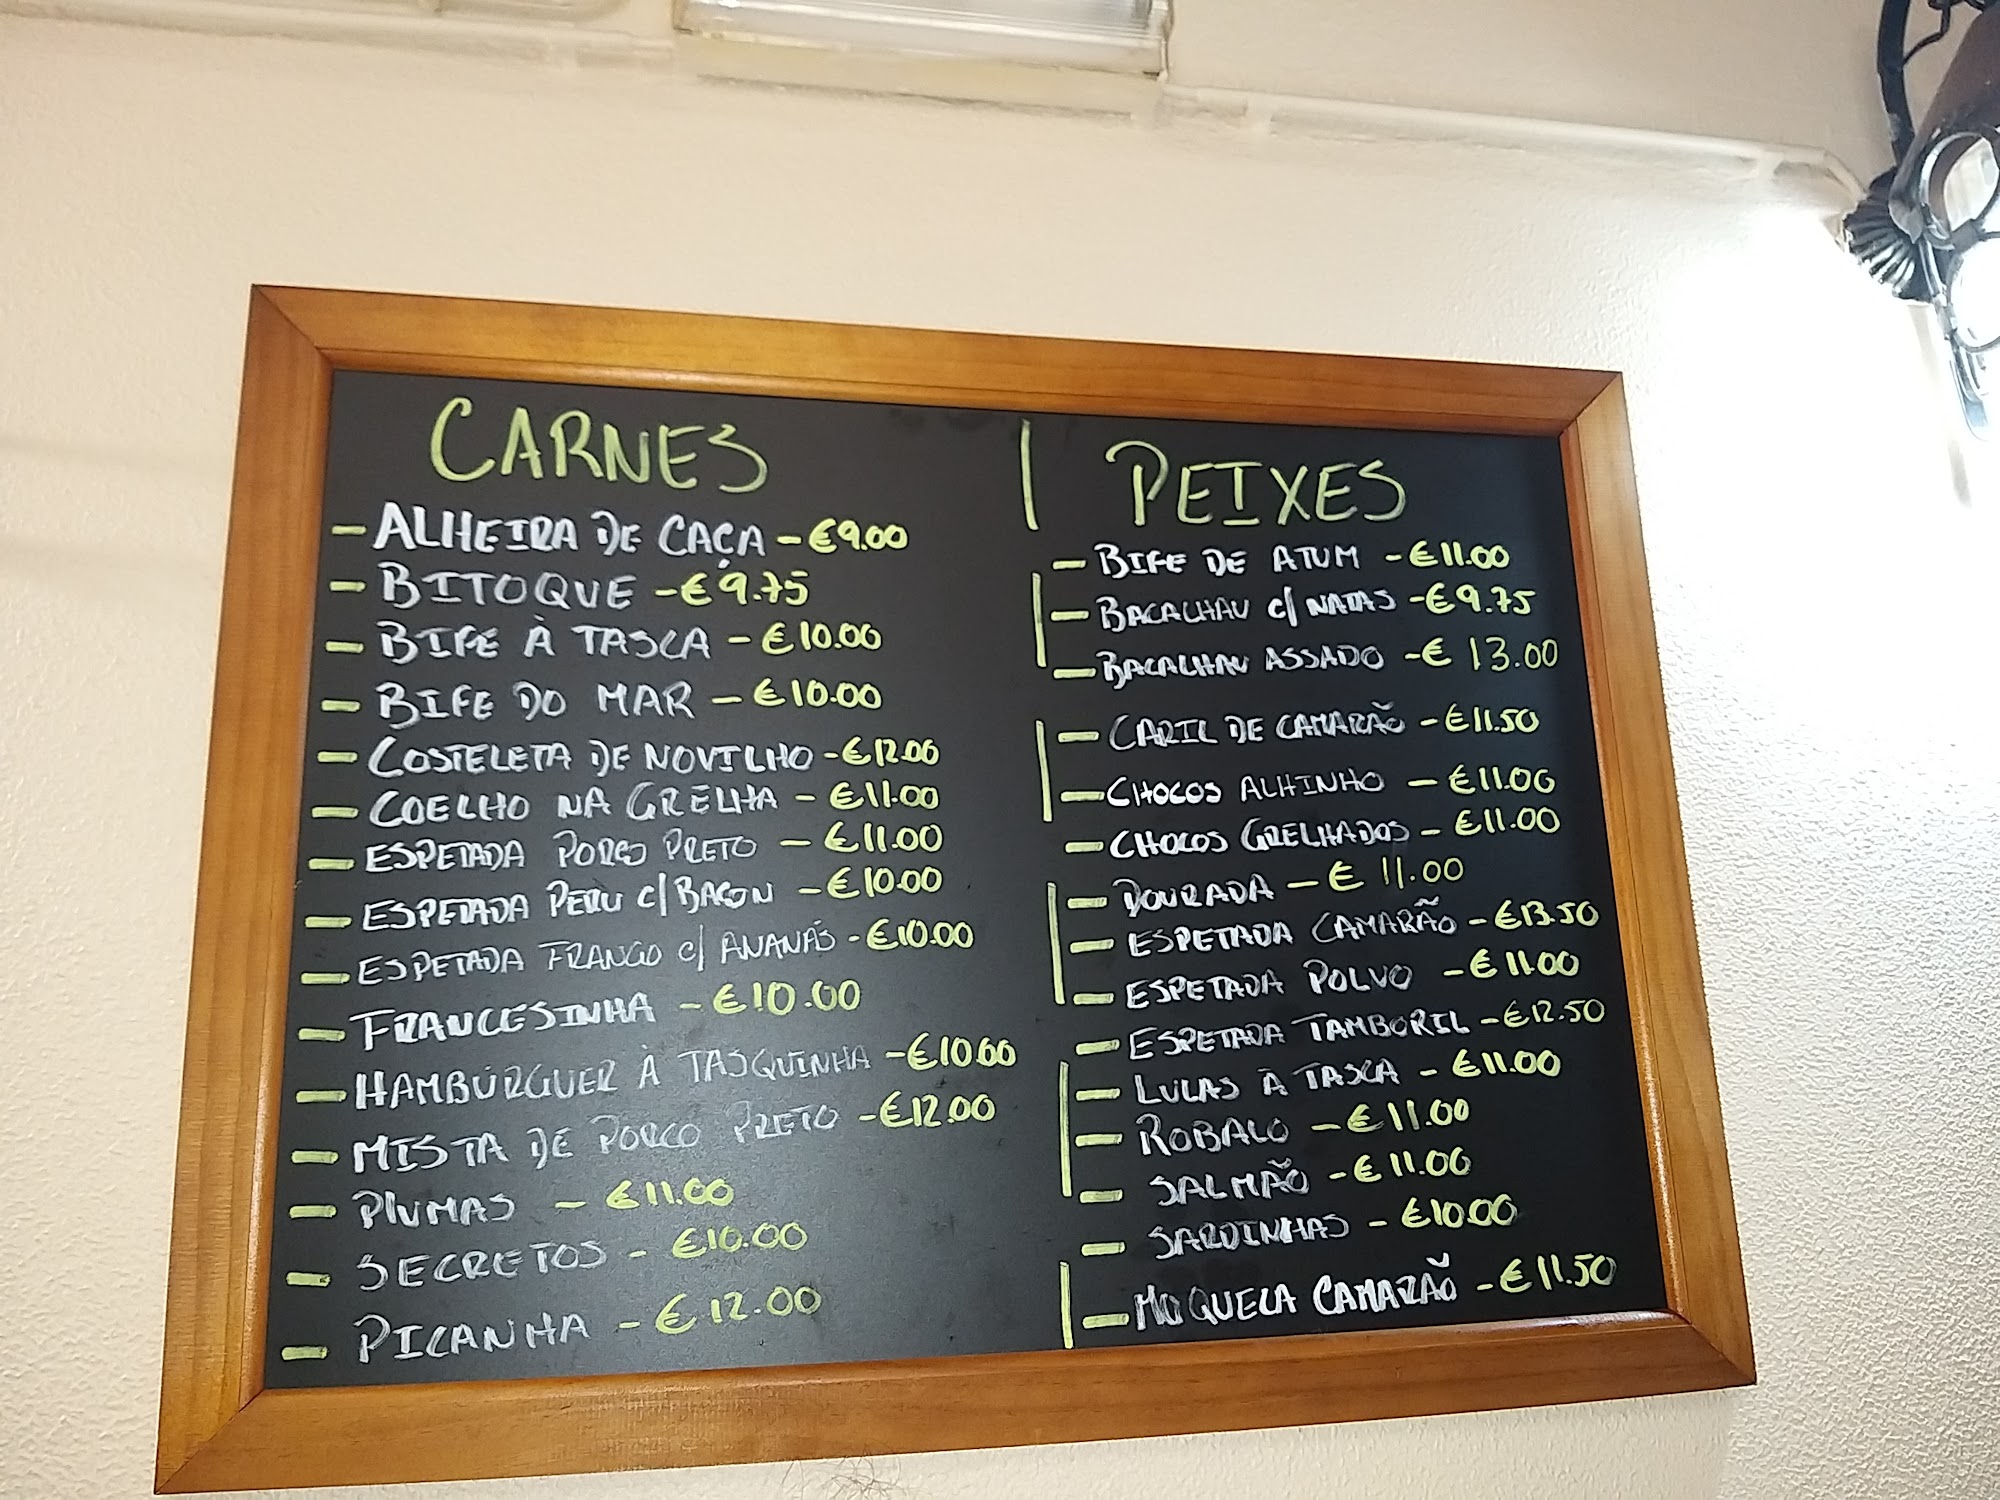 CARNES
- ALHEIRA DE CAÇA - €9.00
- BITOQUE - €9.75
- BIFE À TASCA - €10.00
- BIFE DO MAR - €10.00
- COSTELETA DE NOVILHO - €12.00
- COELHO NA GRELHA - €11.00
- ESPETADA PORCO PRETO - €11.00
- ESPETADA PERU C/ BACON - €10.00
- ESPETADA FRANGO C/ ANANÁS - €10.00
- FRANCESINHA - €10.00
- HAMBÚRGUER À TASQUINHA - €10.00
- MISTA DE PORCO PRETO - €12.00
- PLUMAS - €11.00
- SECRETOS - €10.00
- PICANHA - €12.00
PEIXES
- BIFE DE ATUM - €11.00
- BACALHAU C/ NATAS - €9.75
- BACALHAU ASSADO - €13.00
- CARIL DE CAMARÃO - €11.50
- CHOCOS ALHINHO - €11.00
- CHOCOS GRELHADOS - €11.00
- DOURADA - €11.00
- ESPETADA CAMARÃO - €13.50
- ESPETADA POLVO - €11.00
- ESPETADA TAMBORIL - €12.50
- LULAS À TASCA - €11.00
- ROBALO - €11.00
- SALMÃO - €11.00
- SARDINHAS - €10.00
- MOQUECA CAMARÃO - €11.50